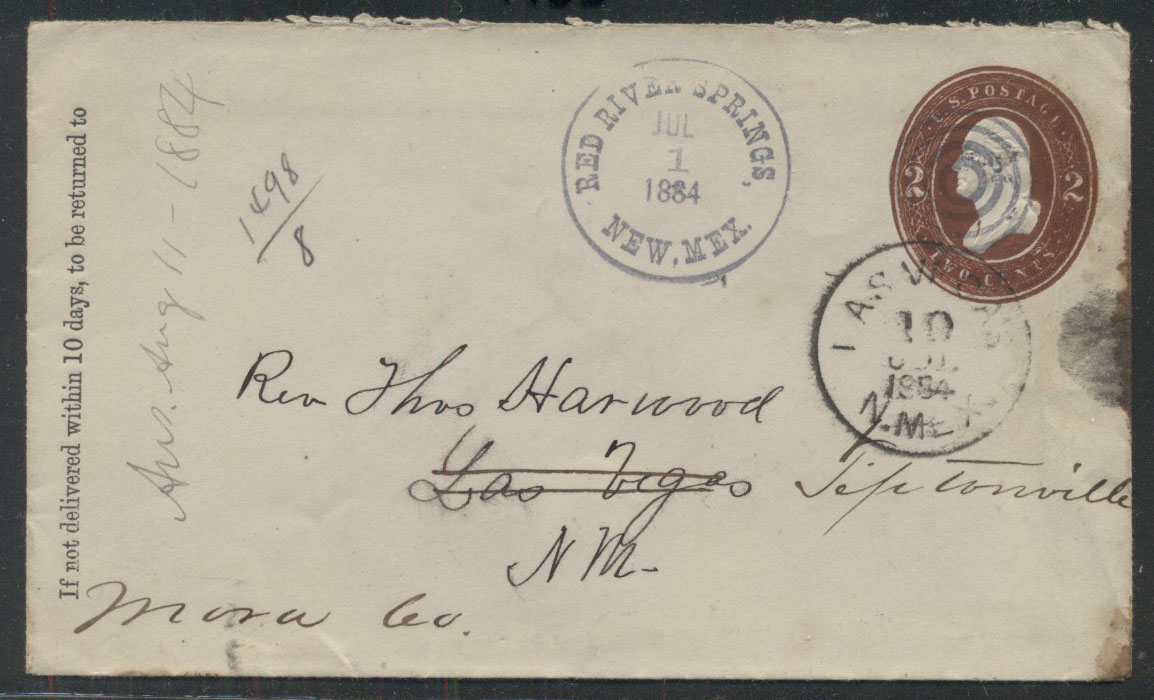 If not delivered within 10 days, to be returned to
Ans. Aug 11 - 1884
1498/8
RED RIVER SPRINGS,
JUL
1
1884
NEW, MEX.
U.S. POSTAGE
2 2
TWO CENTS
LAS VEGAS
10
JUL
1884
N. MEX.
Rev Thos Harwood
Las Vegas Tiptonville
N M-
Mora Co.